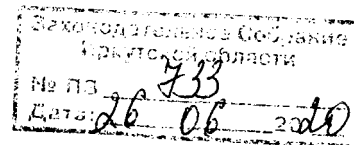 Законодательное Собрание
Иркутской области
№ ПЗ 733
Дата: 26 06 2020